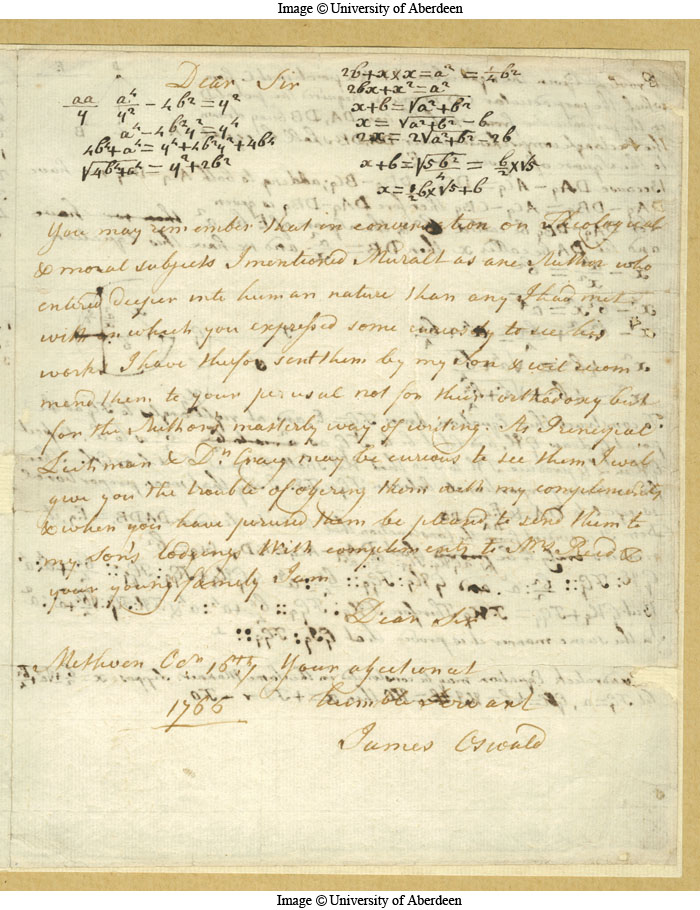 Image © University of Aberdeen
Dear Sir
aa/y a⁴/y² − 4b² = y²
a⁴ − 4b²y² = y⁴
4b⁴+a⁴ = y⁴+4b²y²+4b⁴
√4b⁴+a⁴ = y²+2b²
2b+x×x = a² = ¼b²
2bx+x² = a²
x+b = √a²+b²
x = √a²+b² − b
2x = 2√a²+b² − 2b
x+b = √5b² = b/2×√5
x = ½b×√5+b
You may remember that in conversation on Theological
& moral subjects I mentioned Muralt as one Author who
entered deeper into human nature than any I had met
with on which you expressed some curiosity to see his
works I have therfor sent them by my son & wil recom
mend them to your perusal not for their orthodoxy but
for the Authors masterly way of writing. As Principal
Leishman & Dr Craig may be curious to see them I wil
give you the trouble of offering them with my compliments
& when you have perused them be pleasd to send them to
my sons lodgings With compliments to Mrs Reid &
your young family I am
Dear Sir
Methven Octr 16th Your affectionat
1766 humble servant
James Oswald
Image © University of Aberdeen